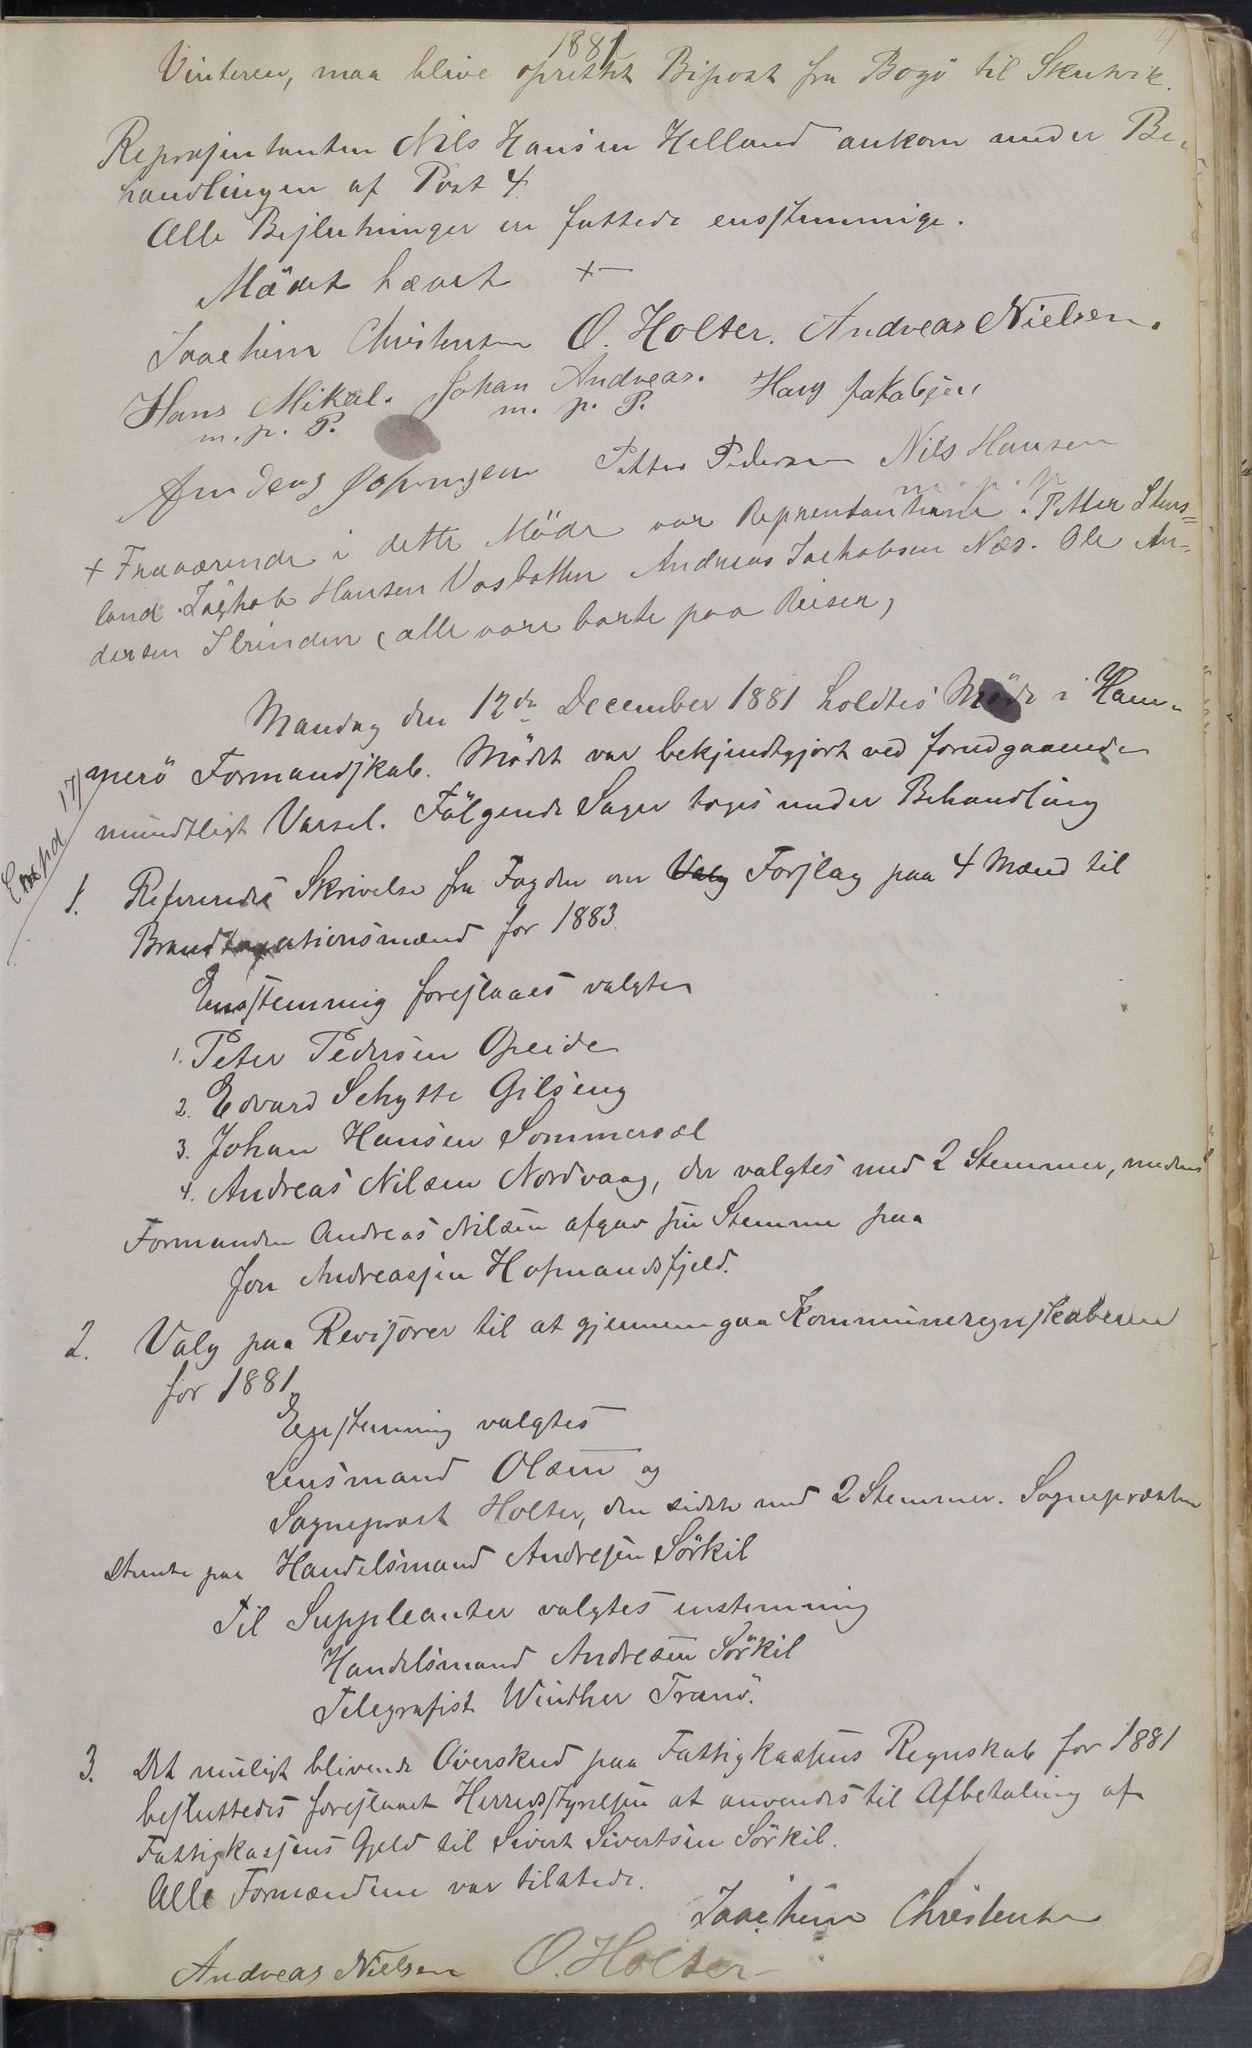 1881
4
Vinteren, maa blive oprettet Bipost fra Bogö til Skutvik.
Repræsentanten Nils Hansen Helland ankom under Be-
handlingen af Post 4.
Alle Beslutninger er fattede enstemmige.
Mödet hævet +
Joachim Christensen O. Holter. Andreas Nielsen.
Hans Mikal. Johan Andreas. Hans Jakobsen
m. p. P. m. p. P.
Andeas Johansen Petter Pedersen Nils Hansen
m. p. p.
+ Fraværende i dette Möde var Reprentanterne. Petter Stens=
land. Jachob Hansen Vasbotten Andreas Jachobsen Næs. Ole An=
dersen Strinden (alle vare borte paa Reiser,
Mandag den 12de December 1881 holdtes Möde i Ham-
merö Formandskab. Mödet var bekjendtgjort ved forudgaaende
mundtligt Varsel. Fölgende Sager toges under Behandling
Exspd 17/
1. Refereredes Skrivelse fra Fogden om Valg Forslag paa 4 Mænd til
Brandtaxationsmænd for 1883.
Enstemmig foreslaaes valgte
1. Peter Pedersen Opeide
2. Edvard Schytte Gilseng
3. Johan Hansen Sommersæl
4. Andreas Nilsen Nordvaag, der valgtes med 2 Stemmer, medens
Formanden Andreas Nilsen afgav sin Stemme paa
Jon Andreassen Hofmandsfjeld.
2. Valg paa Revisorer til at gjennemgaa Kommuneregnskaberne
for 1881.
Enstemmig valgtes
Lensmand Olsen og
Sogneprest Holter, den sidste med 2 Stemmer. Sognepræsten
stemte paa Handelsmand Andresen Sörkil
Til Suppleanter valgtes enstemmig
Handelsmand Andresen Sörkil
Telegrafist Winther Tranö.
3. Det muligt blivende Overskud paa Fattigkassens Regnskab for 1881
besluttedes foreslaaet Herredsstyrelsen at anvendes til Afbetaling af
Fattigkassens Gjeld til Sivert Sivertsen Sörkil.
Alle Formændene var tilstede.
Joachim Christensen
Andreas Nielsen O. Holter